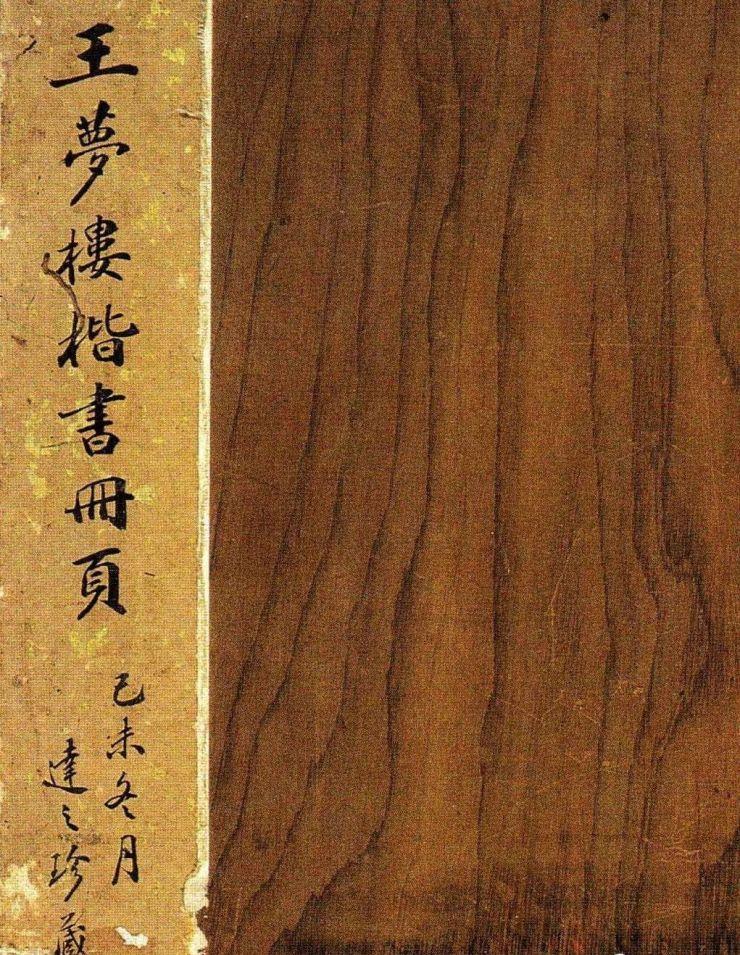 王夢樓楷書冊頁
己未冬月
達之珍藏